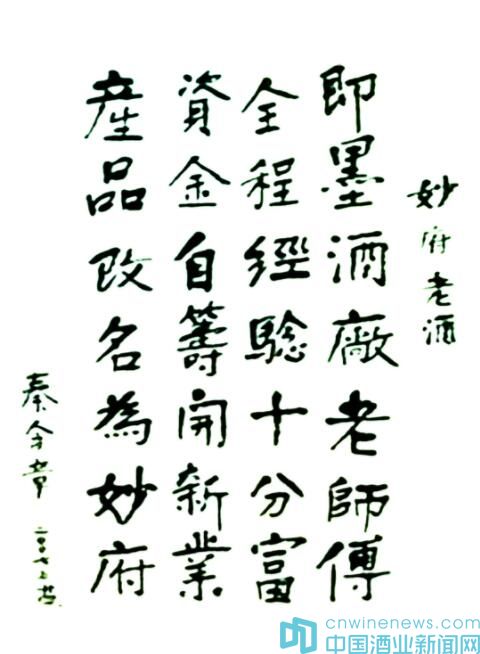 妙府老酒
即墨酒廠老師傅
全程經驗十分富
資金自籌開新業
產品改名為妙府
秦含章
cnwinenews.com
中国酒业新闻网